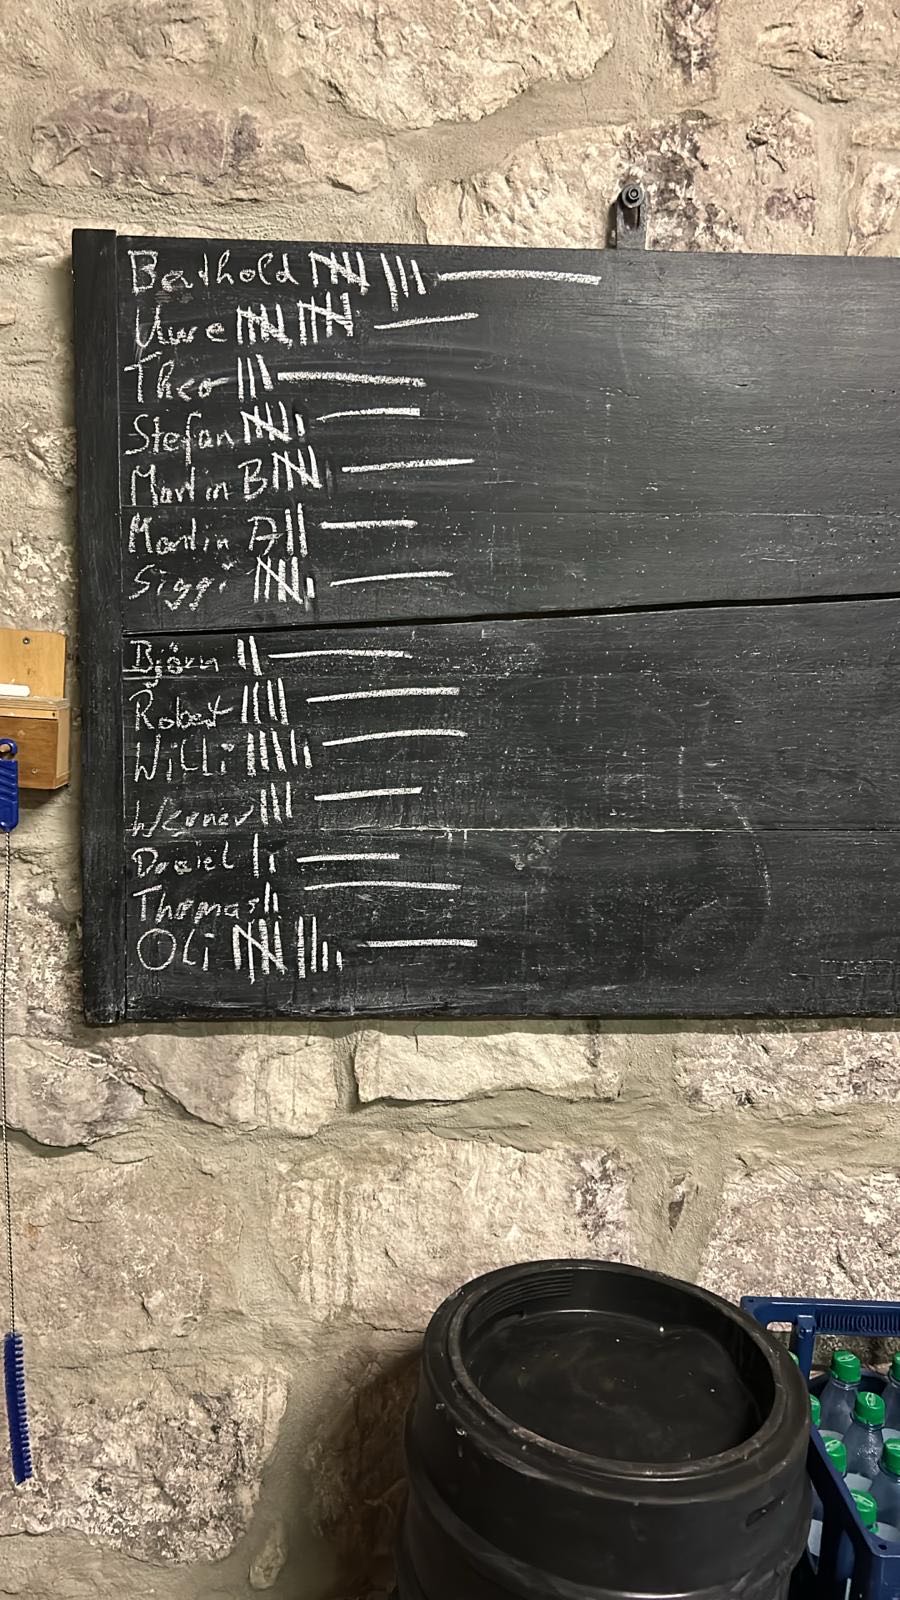 Berthold
Uwe
Theo
Stefan
Martin B
Martin A
Siggi
Björn
Robert
Willi
Werner
Daniel
Thomas
Oli